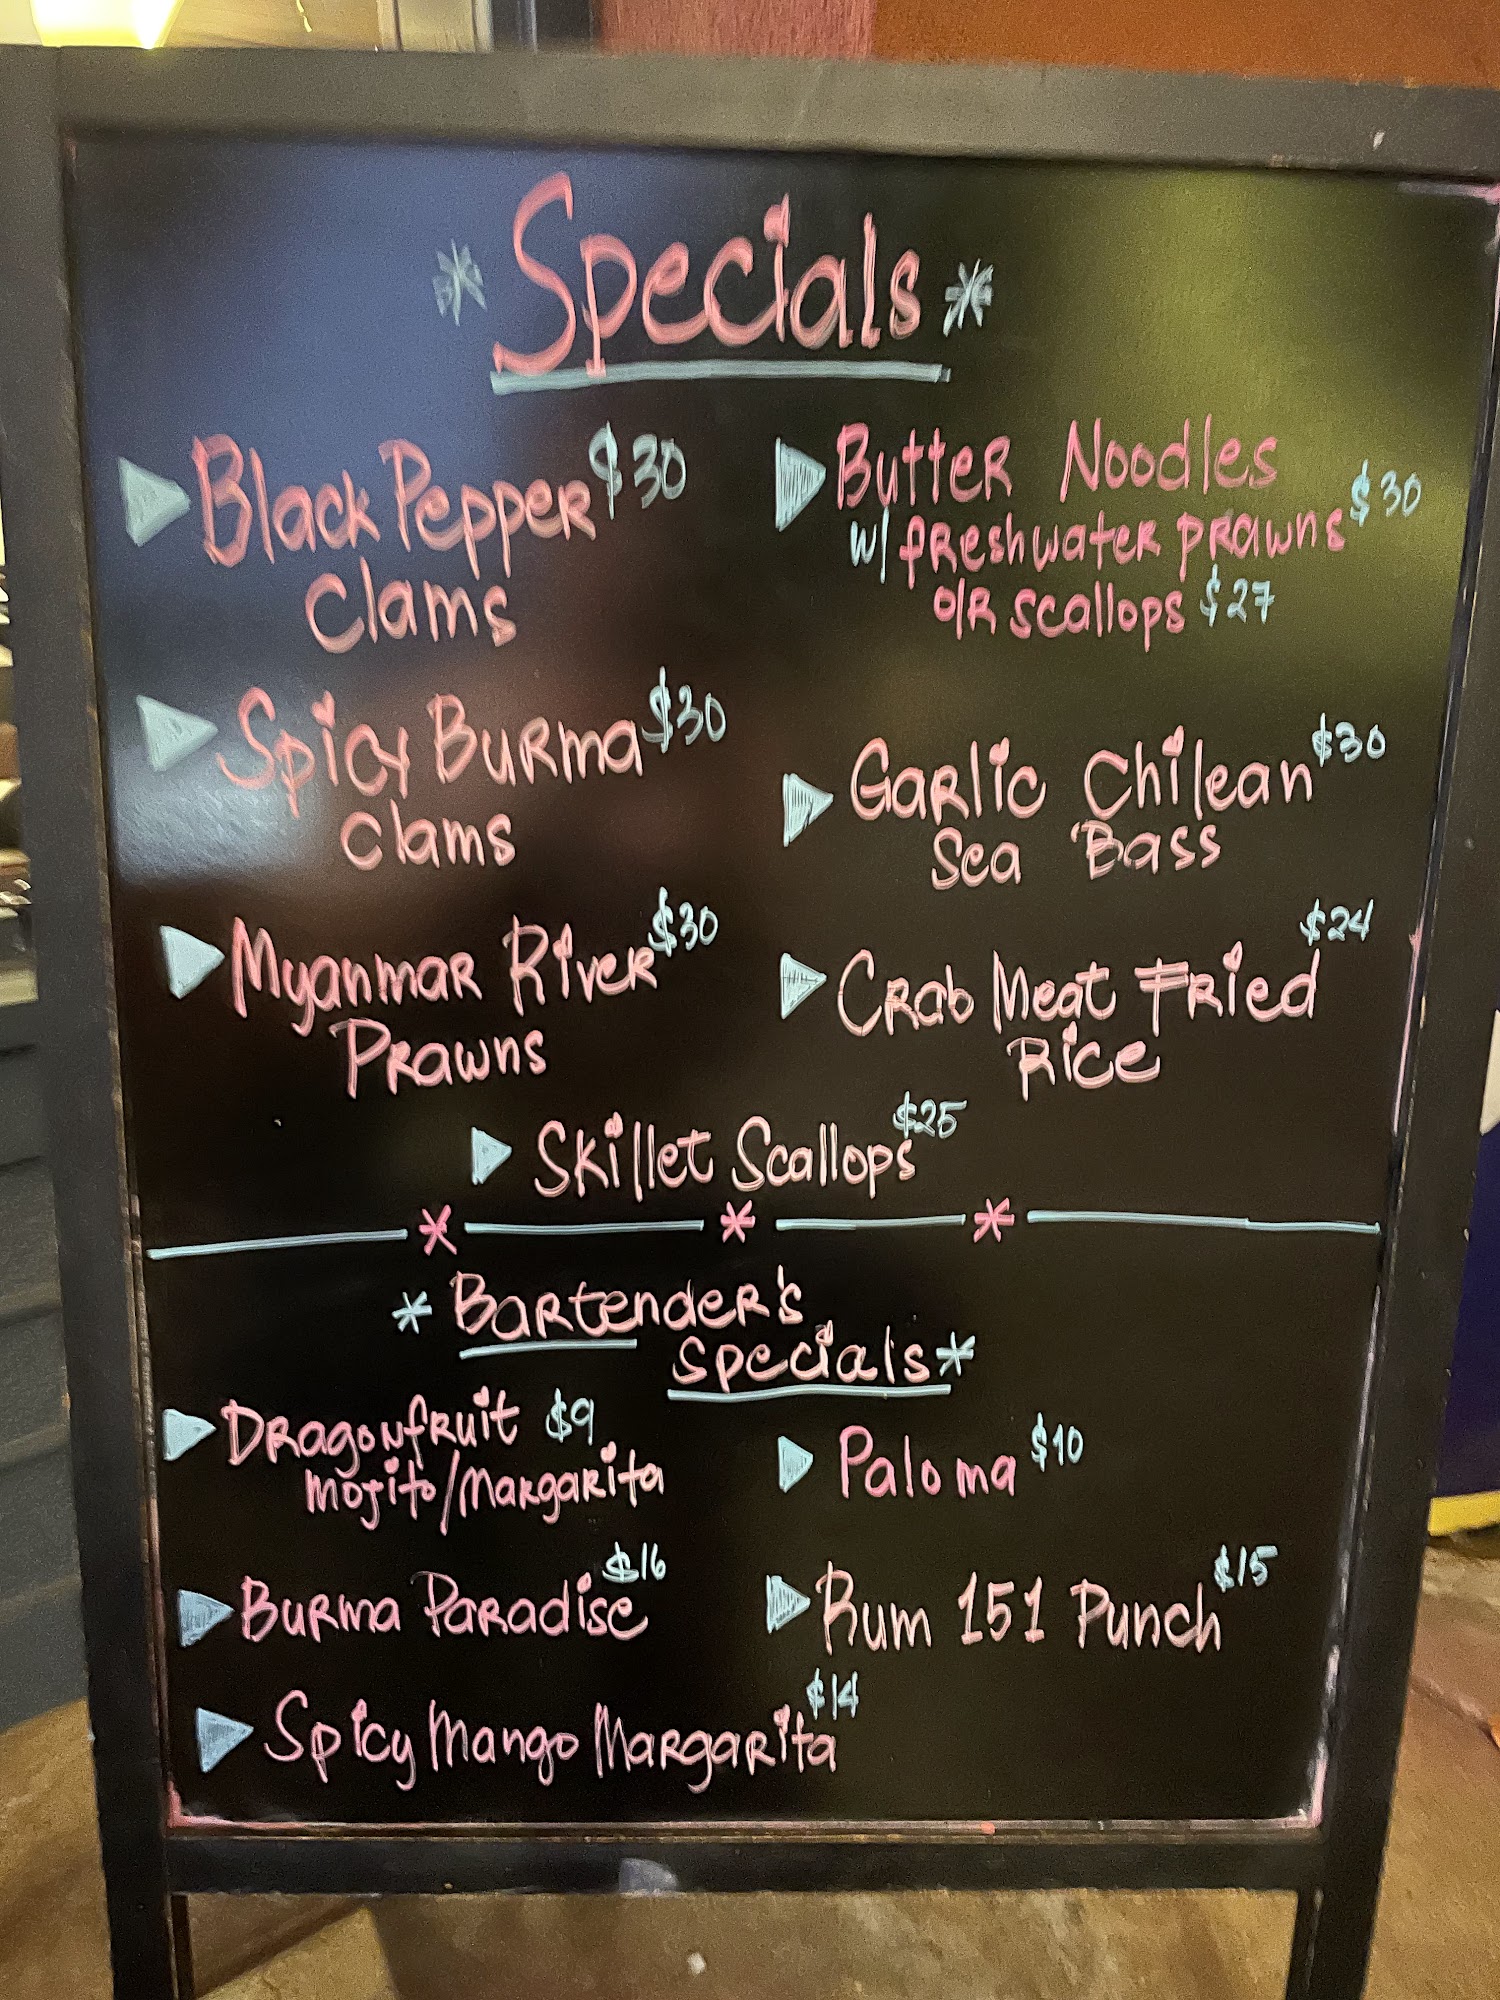 * Specials *
Black Pepper $30
Clams
Spicy Burma $30
Clams
Myanmar River $30
Prawns
Butter Noodles
w/ freshwater prawns $30
o/r scallops $27
Garlic Chilean $30
Sea Bass
Crab Meat Fried $24
Rice
Skillet Scallops $25
* * *
* Bartender's
Specials *
Dragonfruit $9
Mojito/Margarita
Burma Paradise $16
Spicy Mango Margarita $14
Paloma $10
Rum 151 Punch $15